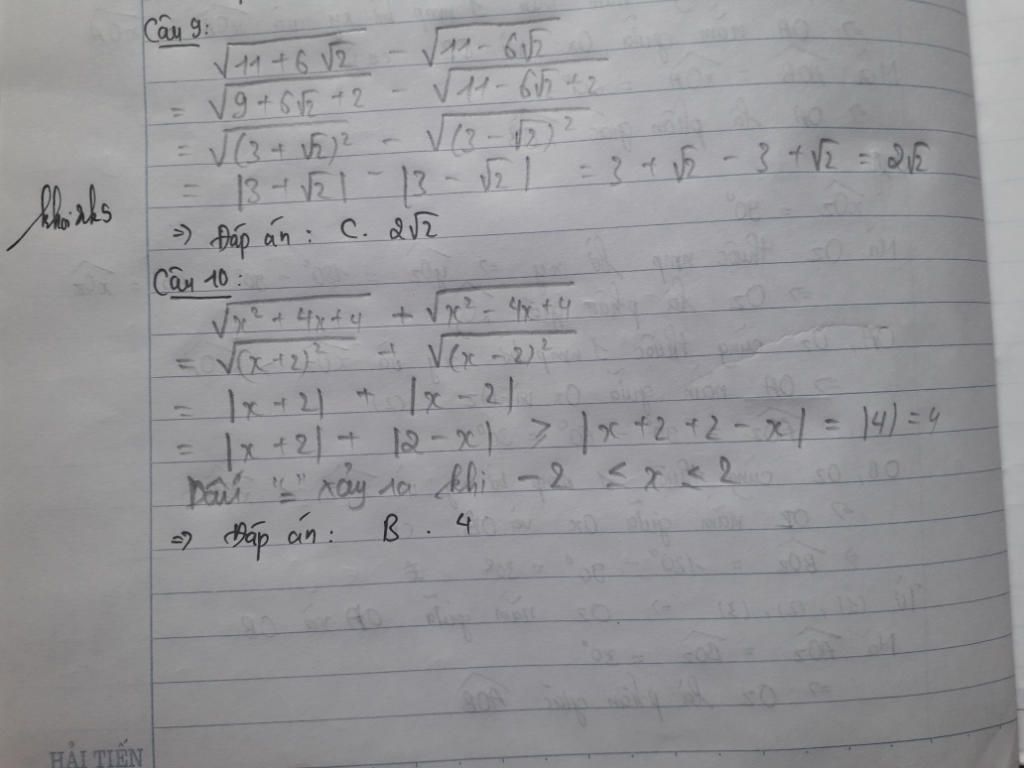 Câu 9:
√(11 + 6√2) - √(11 - 6√2)
= √(9 + 6√2 + 2) - √(11 - 6√2 + 2)
= √((3 + √2)²) - √((3 - √2)²)
= |3 + √2| - |3 - √2| = 3 + √2 - 3 + √2 = 2√2
⇒ Đáp án : C. 2√2
Câu 10:
√(x² + 4x + 4) + √(x² - 4x + 4)
= √((x + 2)²) + √((x - 2)²)
= |x + 2| + |x - 2|
= |x + 2| + |2 - x| ≥ |x + 2 + 2 - x| = |4| = 4
Dấu "=" xảy ra khi -2 ≤ x ≤ 2
⇒ Đáp án : B. 4
HẢI TIẾN